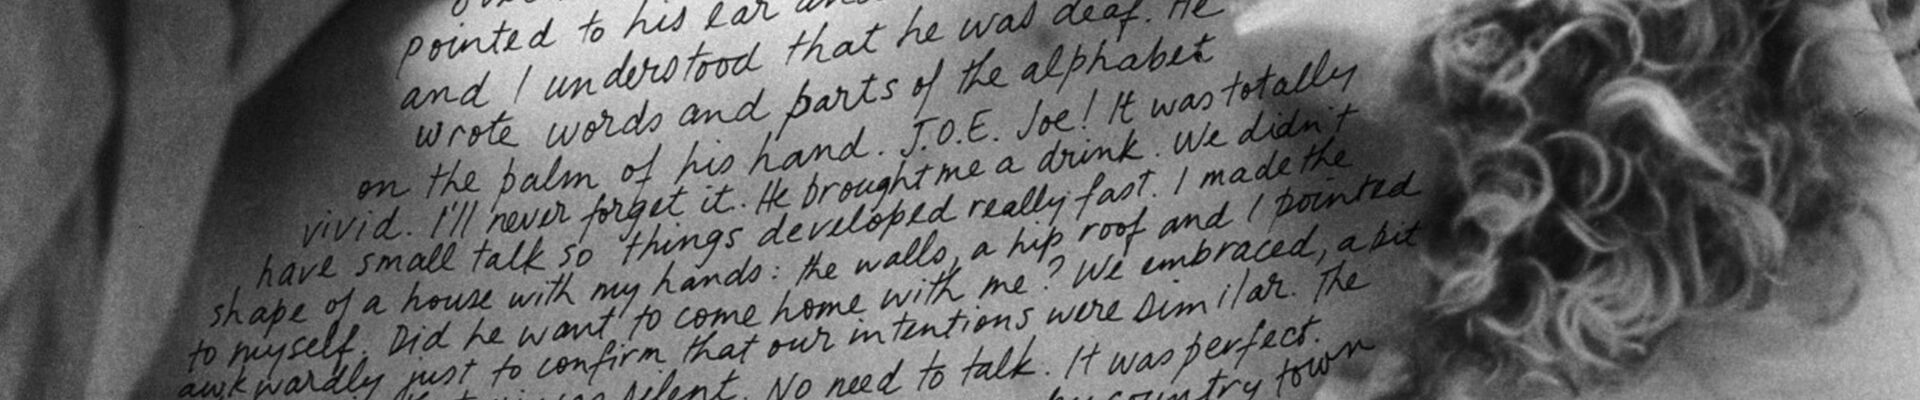 pointed to his ear
and I understood that he was deaf. He
wrote words and parts of the alphabet
on the palm of his hand. J.O.E. Joe! It was totally
vivid. I'll never forget it. He brought me a drink. We didn't
have small talk so things developed really fast. I made the
shape of a house with my hands: the walls, a hip roof and I pointed
to myself. Did he want to come home with me? We embraced, a bit
awkwardly just to confirm that our intentions were similar. The
silent. No need to talk. It was perfect.
country town